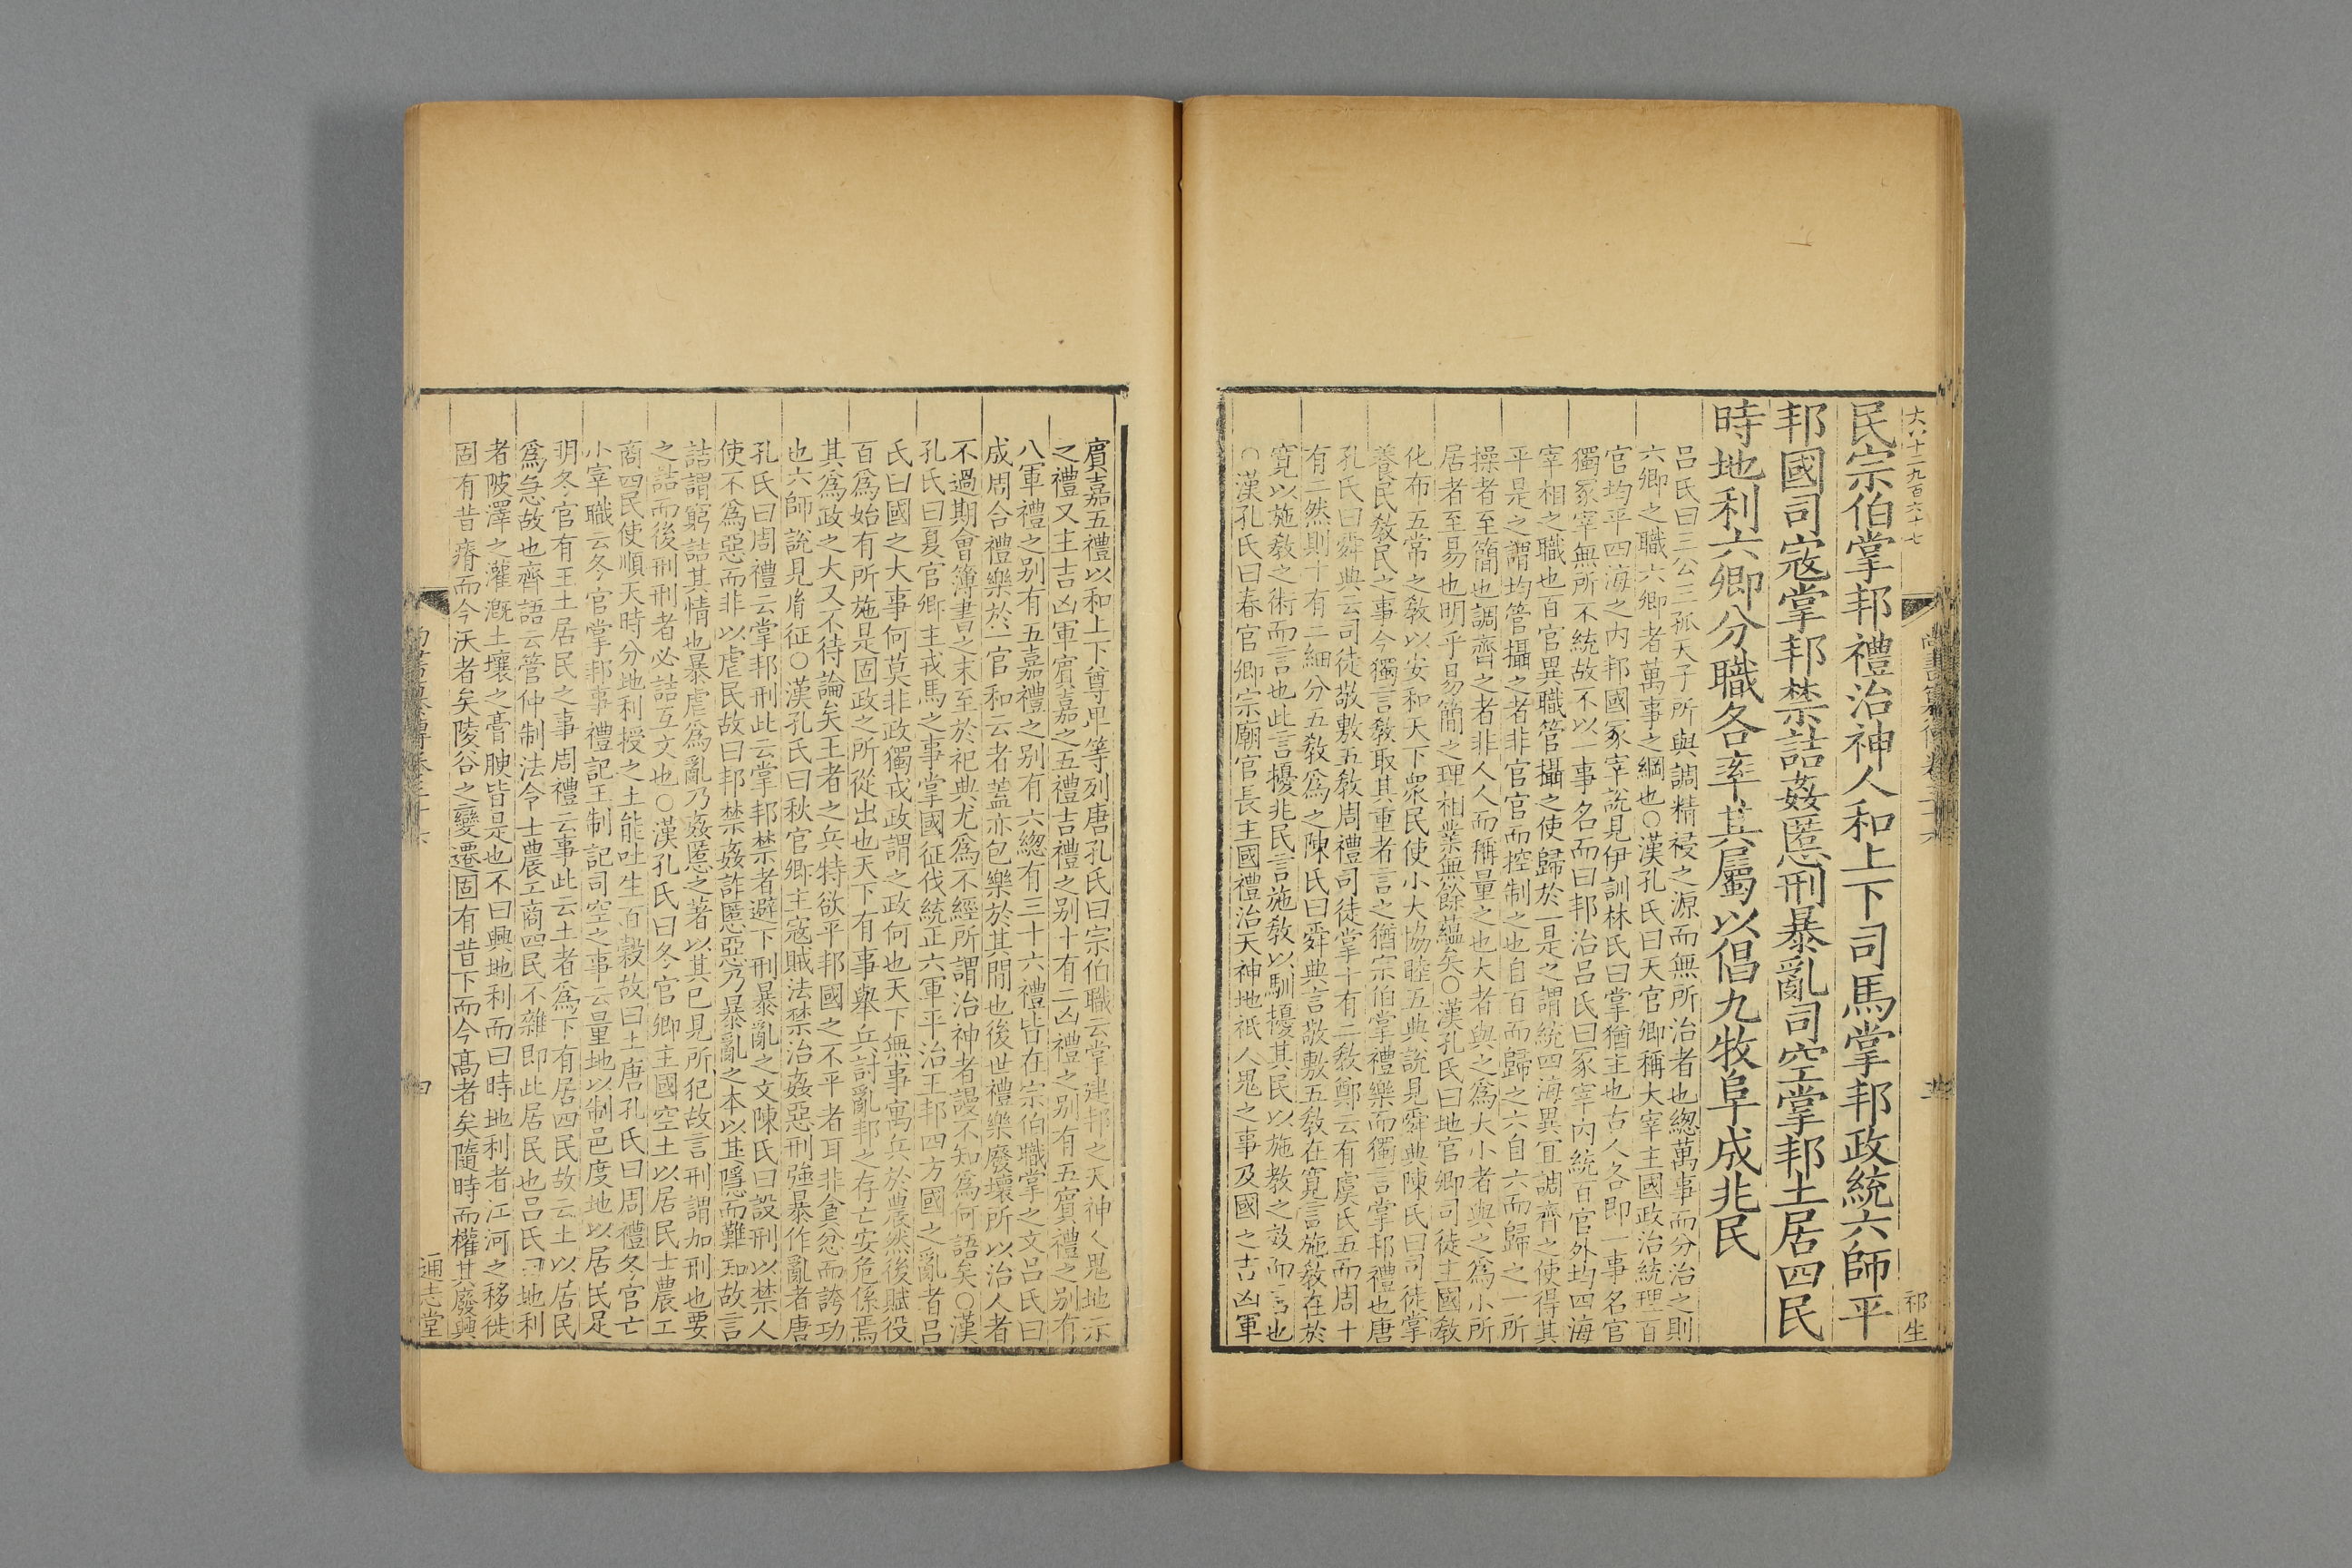 民宗伯掌邦禮治神人和上下司馬掌邦政統六師平
邦國司寇掌邦禁詰姦慝刑暴亂司空掌邦土居四民
時地利六卿分職各率其屬以倡九牧阜成兆民
呂氏曰三公三孤天子所與調精祲之源而無所治者也緫萬事而分治之則
六卿之職六卿者萬事之綱也○漢孔氏曰天官卿稱大宰主國政治統理百
官均平四海之内邦國冢宰說見伊訓林氏曰掌猶主也古人各即一事名官
獨冢宰無所不統故不以一事名而曰邦治呂氏曰冢宰内統百官外均四海
宰相之職也百官異職管攝之使歸於一是之謂統四海異宜調齊之使得其
平是之謂均管攝之者非官官而控制之也自百而歸之六自六而歸之一所
操者至簡也調齊之者非人人而稱量之也大者與之爲大小者與之爲小所
居者至易也明乎易簡之理相業無餘蘊矣○漢孔氏曰地官卿司徒主國敎
化布五常之敎以安和天下衆民使小大協睦五典說見舜典陳氏曰司徒掌
養民敎民之事今獨言敎取其重者言之猶宗伯掌禮樂而獨言掌邦禮也唐
孔氏曰舜典云司徒敬敷五敎周禮司徒掌十有二敎鄭云有虞氏五而周十
有二然則十有二細分五敎爲之陳氏曰舜典言敬敷五敎在寬言施敎在於
寬以施敎之術而言也此言擾兆民言施敎以馴擾其民以施教之效而言也
○漢孔氏曰春官卿宗廟官長主國禮治天神地祇人鬼之事及國之吉凶軍
賓嘉五禮以和上下尊卑等列唐孔氏曰宗伯職云掌建邦之天神人鬼地示
之禮又主吉凶軍賓嘉之五禮吉禮之别十有二凶禮之别有五賓禮之别有
八軍禮之别有五嘉禮之别有六緫有三十六禮皆在宗伯職掌之文呂氏曰
成周合禮樂於一官和云者蓋亦包樂於其間也後世禮樂廢壞所以治人者
不過期會簿書之末至於祀典尤爲不經所謂治神者謾不知爲何語矣○漢
孔氏曰夏官卿主戎馬之事掌國征伐統正六軍平治王邦四方國之亂者呂
氏曰國之大事何莫非政獨戎政謂之政何也天下無事寓兵於農然後賦役
百爲始有所施是固政之所從出也天下有事舉兵討亂邦之存亡安危係焉
其爲政之大又不待論矣王者之兵特欲平邦國之不平者耳非貪忿而誇功
也六師說見胤征○漢孔氏曰秋官卿主寇賊法禁治姦惡刑強暴作亂者唐
孔氏曰周禮云掌邦刑此云掌邦禁者避下刑暴亂之文陳氏曰設刑以禁人
使不爲惡而非以虐民故曰邦禁姦詐慝惡乃暴亂之本以其隱而難知故言
詰謂窮詰其情也暴虐爲亂乃姦慝之著以其已見所犯故言刑謂加刑也要
之詰而後刑刑者必詰互文也○漢孔氏曰冬官卿主國空土以居民士農工
商四民使順天時分地利授之土能吐生百穀故曰土唐孔氏曰周禮冬官亡
小宰職云冬官掌邦事禮記王制記司空之事云量地以制邑度地以居民足
明冬官有主土居民之事周禮云事此云土者爲下有居四民故云土以居民
爲急故也齊語云管仲制法令士農工商四民不雜即此居民也呂氏曰地利
者陂澤之灌漑土壤之膏腴皆是也不曰興地利而曰時地利者江河之移徙
固有昔瘠而今沃者矣陵谷之變遷固有昔下而今高者矣隨時而權其廢興
通志堂